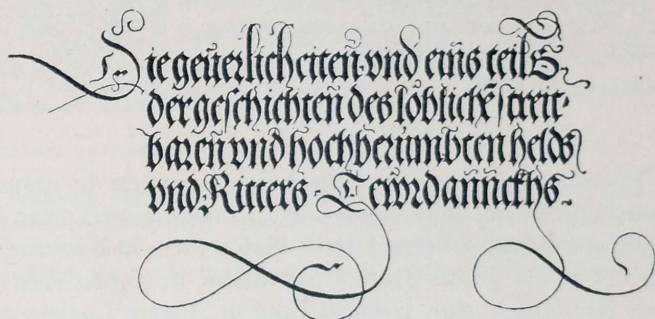 Die geűerlicheiten vnd eins teils
der geschichten des loblichē streit-
baren vnd hochberümbten helds
vnd Ritters Tewrdannckhs.